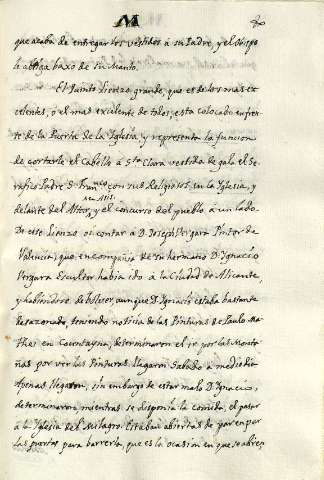 M
que acaba de entregar los vestidos á su Padre, y el Obispo
le abriga baxo de su Manto.
El Quinto Lienzo grande, que es de los mas ex
celentes, ó el mas excelente de todos, esta colocado enfren
te de la Puerta de la Yglesia, y representa la funcion
de cortarle el Cabello á Sta Clara vestida de gala el Se
rafico Padre S. Franco con sus Religiosos, en la Yglesia, y
delante del Altar, y el concurso del pueblo á un lado.
De este Lienzo oí contar á D. Joseph Vergara Pintor de
Valencia, que en compañia de su hermano D. Ignacio
Vergara Escultor habia ido á la Ciudad de Alicante,
y habiendose de bolver, aunque D. Ignacio estaba bastante
desazonado, teniendo noticia de las Pinturas de Paulo Ma
thei en Cocentayna, determinaron el ir por las Monta
ñas por ver las Pinturas. Llegaron Sabado a medio dia
Apenas llegaron, sin embargo de estar malo D. Ignacio,
determinaron, mientras se disponia la comida, el pasar
á la Yglesia del Milagro. Estaban abiertas de par en par
las puertas para barrerla, que es la ocasion en que se abren